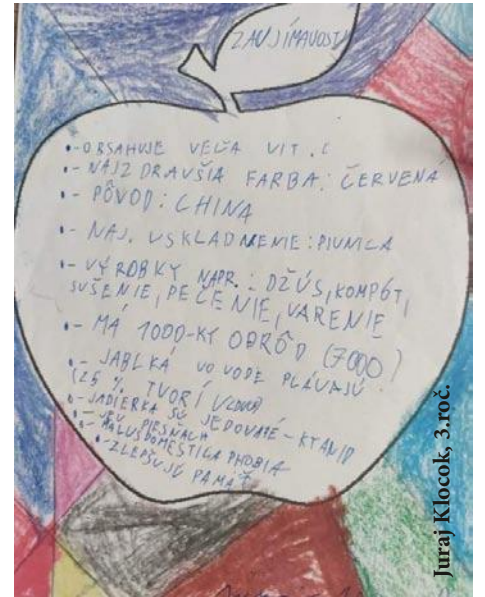 ZAUJÍMAVOSTI
•- OBSAHUJE VEĽA VIT. C
•- NAJZDRAVŠIA FARBA: ČERVENÁ
•- PÔVOD: CHINA
•- NAJ. USKLADNENIE: PIVNICA
•- VÝROBKY NAPR.: DŽÚS, KOMPÓT,
SUŠENIE, PEČENIE, VARENIE
•- MÁ 1000-KY ODRÔD (7000)
•- JABLKÁ VO VODE PLÁVAJÚ
(25 % TVORÍ VZDUCH)
•- JADIERKA SÚ JEDOVATÉ - KYANID
PIESŇACH
•- MALUSDOMESTICA PHOBIA
•- ZLEPŠUJÚ PAMÄŤ
Juraj Klocok, 3.roč.